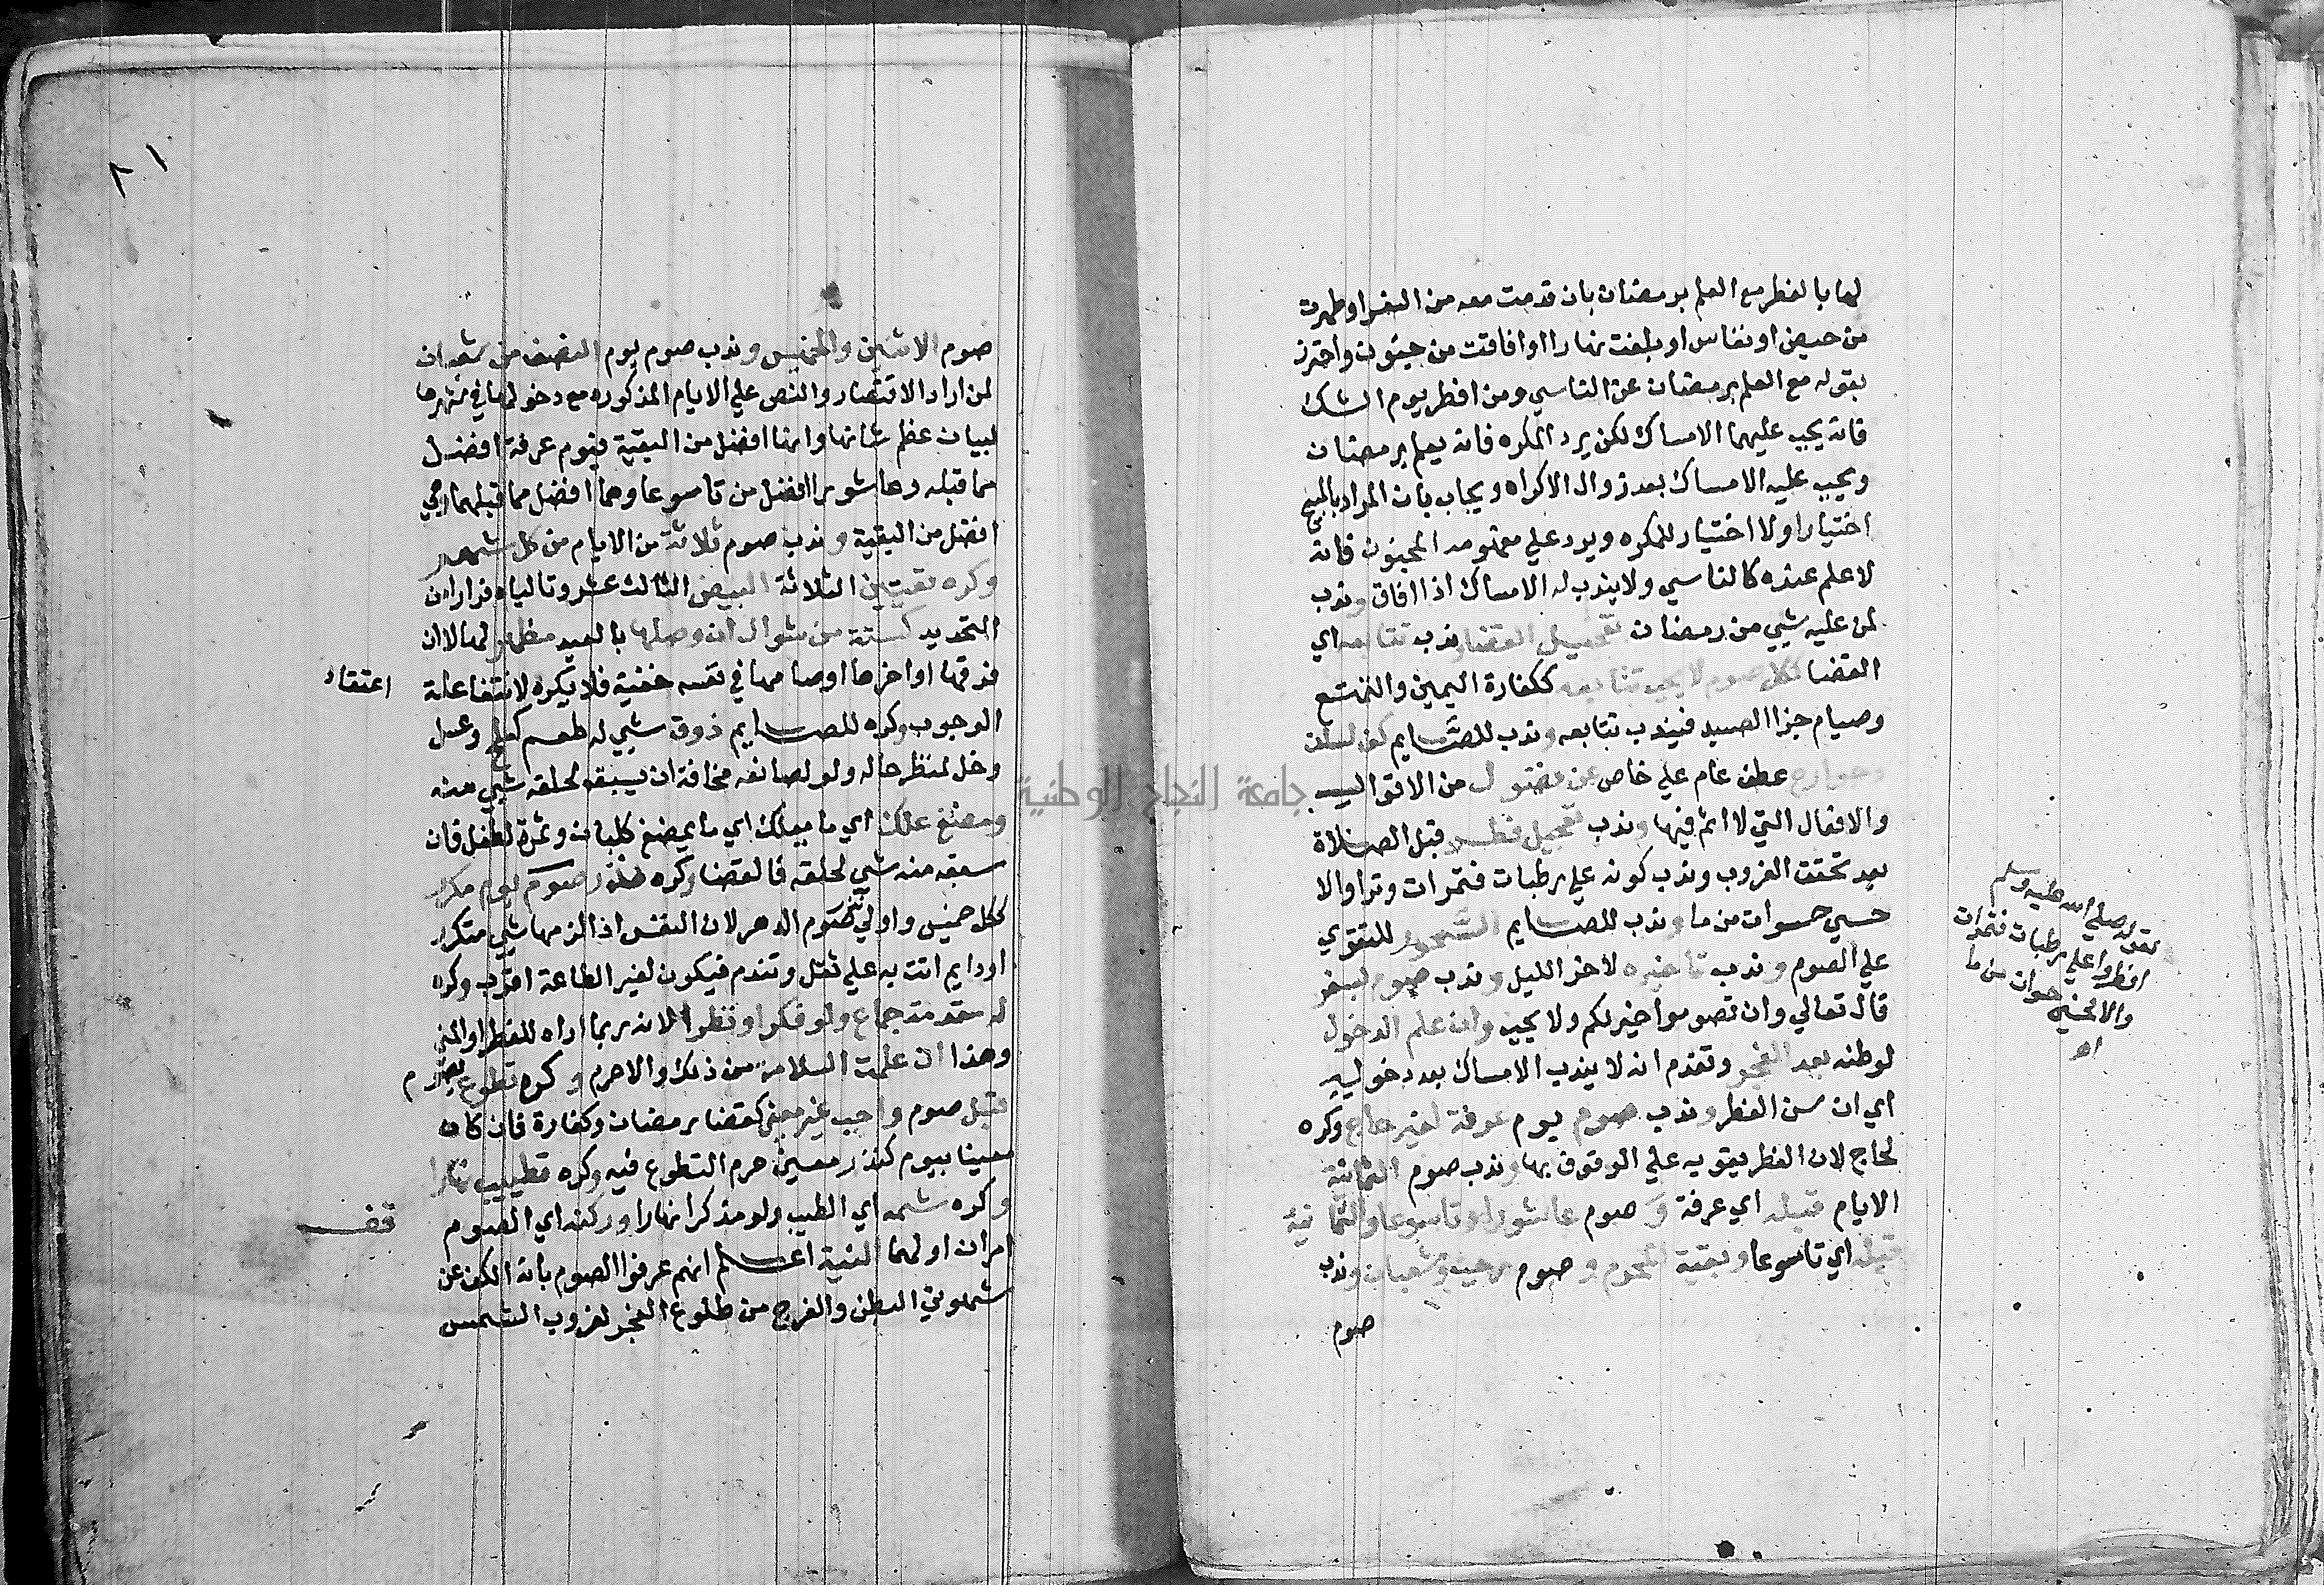 لها بالفطر مع العلم برمضان بان قدمت معه من السفر او طهرت
من حيض او نفاس او بلغت نهارا او افاقت من جنون واحترز
بقوله مع العلم برمضان عن الناسي ومن افطر يوم الشك
فانه يجب عليهما الامساك لكن يرد المكره فانه يعلم برمضان
ويجب عليه الامساك بعد زوال الاكراه ويجاب بان المراد بالمبيح
اختيارا ولا اختيار للمكره ويرد علي مفهومه المجنون فانه
لا علم عنده كالناسي ولا يندب له الامساك اذا افاق وندب
لمن عليه شي من رمضان تعجيل القضا وندب تتابعه اي
القضا ككل صوم لا يجب تتابعه ككفارة اليمين والتمتع
وصيام جزا الصيد فيندب تتابعه وندب للصايم كف لسان
وجوارح عطف عام علي خاص عن فضول من الاقوال
والافعال التي لا اثم فيها وندب تعجيل فطر قبل الصلاة
بعد تحقق الغروب وندب كونه علي رطبات فتمرات وترا والا
حسي حسوات من ما وندب للصايم السحور للتقوي
علي الصوم وندب تاخيره لاخر الليل وندب صوم لسفر
قال تعالي وان تصوموا خير لكم ولا يجب وان علم الدخول
لوطنه بعد الفجر وتقدم انه لا يندب الامساك بعد دخوليه
اي ان من الفطر وندب صوم يوم عرفة لغير حاج وكره
لحاج لان الفطر يقويه علي الوقوف بها وندب صوم الثمانية
الايام قبله اي عرفة و صوم عاشورا وتاسوعا والثمانية
قبله اي تاسوعا وبقية المحرم و صوم رجب وشعبان وندب
صوم
صلي الله عليه وسلم
افطروا علي رطبات فتمرات
والا حسوات من ما
اه
٨١
صوم الاثنين والخميس وندب صوم يوم النصف من شعبان
لمن اراد الاقتصار والنص علي الايام المذكوره مع دخولها في شهرها
لبيان عظم شانها وانها افضل من البقية فيوم عرفة افضل
مما قبله وعاشورا افضل من تاسوعا وهما افضل مما قبلهما وهي
افضل من البقية وندب صوم ثلاثة من الايام من كل شهر
وكره تعيين الثلاثة البيض الثالث عشر وتالياه فرارا من
التحديد كستة من شوال ان وصلها بالعيد مظهرا لها لا ان
فرقها او اخرها او صامها في نفسه خفية فلا يكره لانتفا علة
اعتقاد
الوجوب وكره للصايم ذوق شي له طعم كملح وعسل
وخل لمنظر حاله ولو لصانعه مخافة ان يسبق لحلقه شي منه
ومضغ علك اي ما يعلك اي ما يمضغ كلبان وتمرة لطفل فان
سبقه منه شي لحلقه فالقضا وكره نذر صوم يوم مكرر
ككل خميس واولي نذر صوم الدهر لان النفس اذا الزمها شي متكرر
او دايم اتت به علي ثقل وتندم فيكون لغير الطاعة اقرب وكره
له مقدمة جماع ولو فكرا او نظرا لانه ربما اداه للفطر او المني
وهذا ان علمت السلامة من ذلك والا حرم وكره تطوع بصوم
قبل صوم واجب غير معين كقضا رمضان وكفارة فان كان
معينا بيوم كنذر معين حرم التطوع فيه وكره تطييب نهارا
وكره شمه اي الطيب ولو مذكرا نهارا وركنه اي الصوم
قف
امران اولهما النية اعلم انهم عرفوا الصوم بانه الكف عن
شهوتي البطن والفرج من طلوع الفجر لغروب الشمس
جامعة النجاح الوطنية